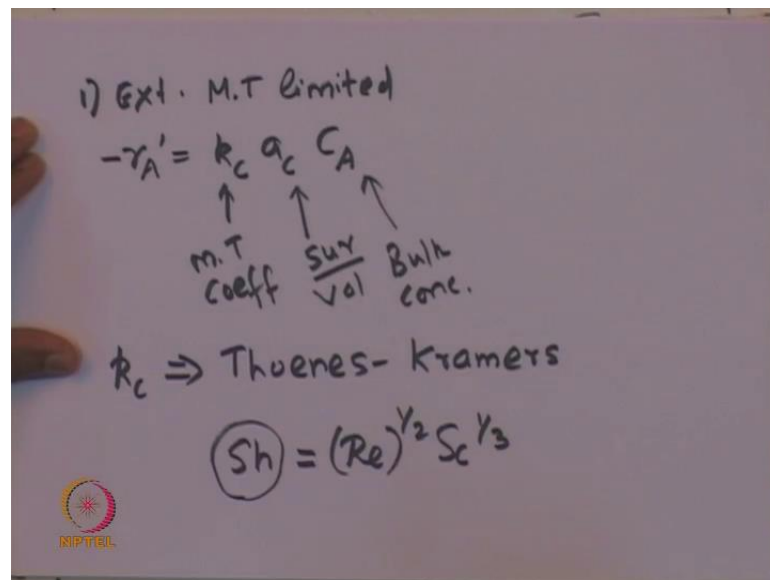 1) Ext. M.T limited
-r_A' = k_c a_c C_A
↑ ↑ ↖
m.T Sur Bulk
coeff vol conc.
k_c ⇒ Thoenes - Kramers
Sh = (Re)^1/2 Sc^1/3
NPTEL